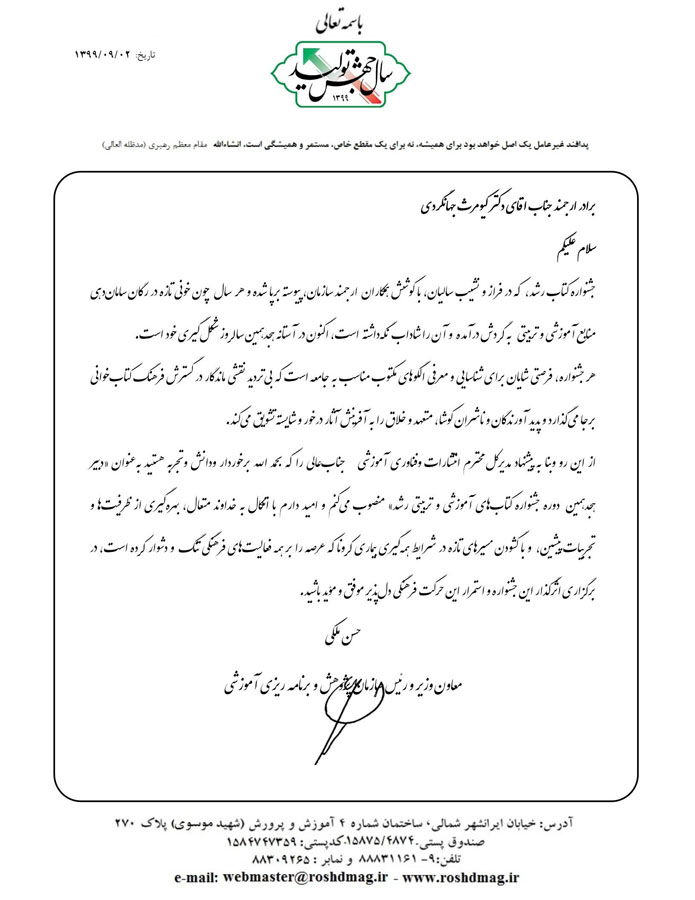 باسمه تعالی
تاریخ: ۱۳۹۹/۰۹/۰۲
سال جهش تولید
۱۳۹۹
پدافند غیرعامل یک اصل خواهد بود برای همیشه، نه برای یک مقطع خاص، مستمر و همیشگی است. انشاءالله  مقام معظم رهبری (مدظله العالی)
برادر ارجمند جناب آقای دکتر کیومرث جهانگردی
سلام علیکم
جشنواره کتاب رشد، که در فراز و نشیب سالیان، با کوشش همکاران ارجمند سازمان، پیوسته برپا شده و هر سال چون خونی تازه در رگان سامان‌دهی
منابع آموزشی و تربیتی به گردش درآمده و آن را شاداب نگه داشته است، اکنون در آستانه هجدهمین سالروز شکل‌گیری خود است.
هر جشنواره، فرصتی شایان برای شناسایی و معرفی الگوهای مکتوب مناسب به جامعه است که بی‌تردید نقشی ماندگار در گسترش فرهنگ کتاب‌خوانی
برجا می‌گذارد و پدیدآورندگان و ناشران کوشا، متعهد و خلاق را به آفرینش آثار درخور و شایسته تشویق می‌کند.
از این رو وبنا به پیشنهاد مدیرکل محترم انتشارات وفناوری آموزشی جناب‌عالی را که بحمد الله برخوردار ودانش وتجربه هستید به‌عنوان «دبیر
هجدهمین دوره جشنواره کتاب‌های آموزشی و تربیتی رشد» منصوب می‌کنم و امید دارم با اتکال به خداوند متعال، بهره‌گیری از ظرفیت‌ها و
تجربیات پیشین، و با گشودن مسیرهای تازه در شرایط همه‌گیری بیماری کرونا که عرصه را بر همه فعالیت‌های فرهنگی تنگ و دشوار کرده است، در
برگزاری اثرگذار این جشنواره و استمرار این حرکت فرهنگی دل‌پذیر موفق و مؤید باشید.
حسن ملکی
معاون وزیر و رئیس سازمان پژوهش و برنامه ریزی آموزشی
آدرس: خیابان ایرانشهر شمالی، ساختمان شماره ۴ آموزش و پرورش (شهید موسوی) پلاک ۲۷۰
صندوق پستی ۱۵۸۷۵/۴۸۷۴، کدپستی: ۱۵۸۴۷۴۷۳۵۹
تلفن: ۹- ۸۸۸۳۱۱۶۱ و نمابر : ۸۸۳۰۹۲۶۵
e-mail: webmaster@roshdmag.ir - www.roshdmag.ir